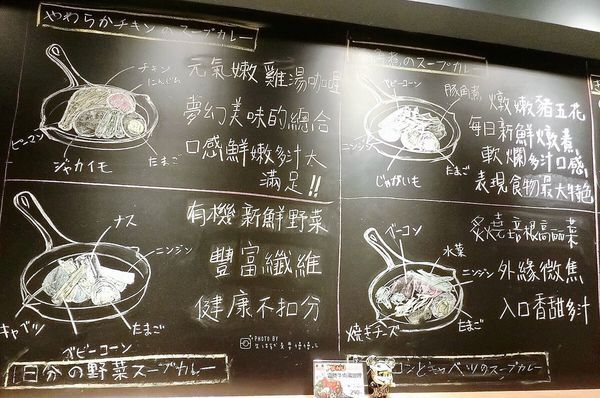 やわらかチキンのスープカレー
チキン
にんじん
ピーマン
ジャカイモ
たまご
元氣嫩雞湯咖哩
夢幻美味的總合
口感鮮嫩多汁大
滿足!!
角煮のスープカレー
ベビーコーン
豚角煮
ニンジン
じゃがいも
たまご
燉嫩豬五花
每日新鮮燉煮
軟爛多汁口感
表現食物最大特色
ナス
ニンジン
キャベツ
たまご
ズビーコーン
有機新鮮野菜
豐富纖維
健康不扣分
日分の野菜スープカレー
PHOTO BY
ベーコン
水菜
ニンジン
焼きチーズ
たまご
炙燒培根高麗菜
外緣微焦
入口香甜多汁
コンとキャベツのスープカレー